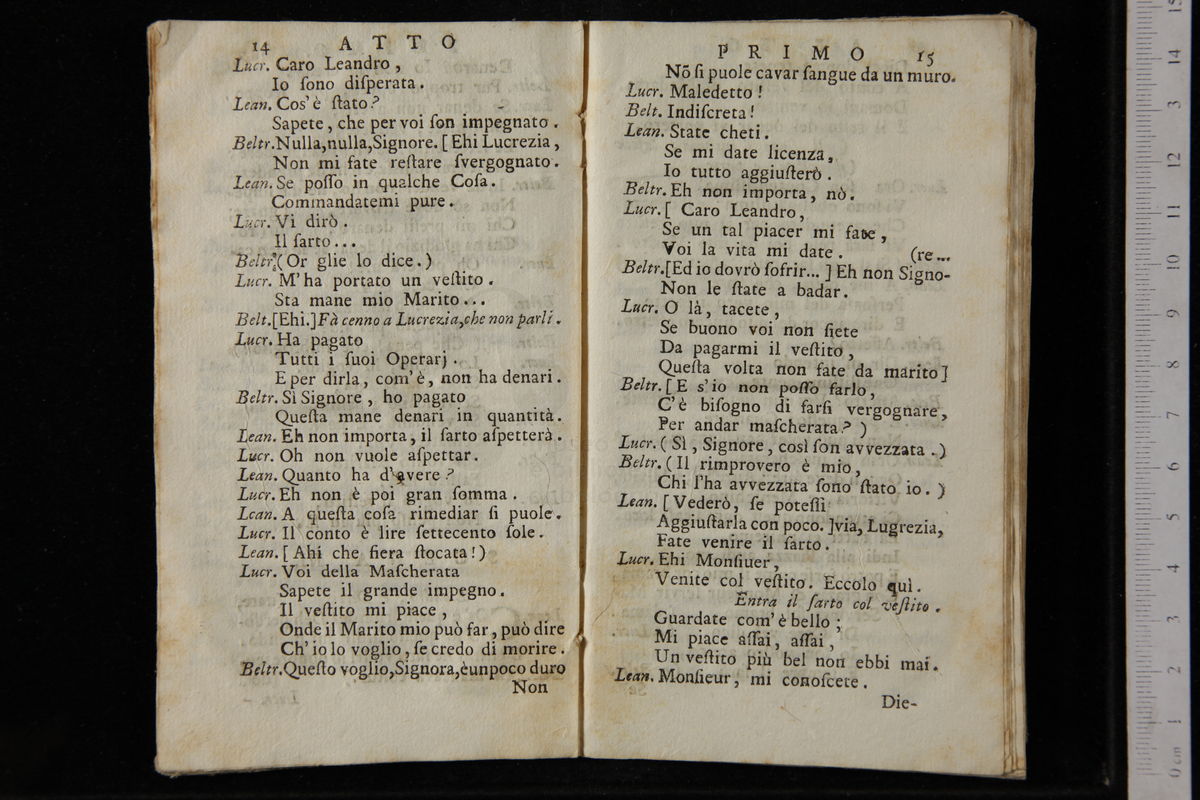 14 ATTO
Lucr. Caro Leandro,
Io ſono diſperata.
Lean. Cos' è ſtato?
Sapete, che per voi ſon impegnato.
Beltr. Nulla, nulla, Signore. [Ehi Lucrezia,
Non mi fate reſtare ſvergognato.
Lean. Se poſſo in qualche Coſa.
Commandatemi pure.
Lucr. Vi dirò.
Il ſarto...
Beltr. (Or glie lo dice.)
Lucr. M' ha portato un veſtito.
Sta mane mio Marito...
Belt. [Ehi.] Fà cenno a Lucrezia, che non parli.
Lucr. Ha pagato
Tutti i ſuoi Operarj.
E per dirla, com' è, non ha denari.
Beltr. Sì Signore, ho pagato
Queſta mane denari in quantità.
Lean. Eh non importa, il ſarto aſpetterà.
Lucr. Oh non vuole aſpettar.
Lean. Quanto ha d'avere?
Lucr. Eh non è poi gran ſomma.
Lean. A queſta coſa rimediar ſi puole.
Lucr. Il conto è lire ſettecento ſole.
Lean. [Ahi che fiera ſtocata!)
Lucr. Voi della Maſcherata
Sapete il grande impegno.
Il veſtito mi piace,
Onde il Marito mio può far, può dire
Ch' io lo voglio, ſe credo di morire.
Beltr. Queſto voglio, Signora, è un poco duro
Non
PRIMO 15
Nō ſi puole cavar ſangue da un muro.
Lucr. Maledetto!
Belt. Indiſcreta!
Lean. State cheti.
Se mi date licenza,
Io tutto aggiuſterò.
Beltr. Eh non importa, nò.
Lucr. [Caro Leandro,
Se un tal piacer mi fate,
Voi la vita mi date. (re...
Beltr. [Ed io dovrò ſofrir...] Eh non Signo-
Non le ſtate a badar.
Lucr. O là, tacete,
Se buono voi non ſiete
Da pagarmi il veſtito,
Queſta volta non fate da marito]
Beltr. [E s'io non poſſo farlo,
C'è biſogno di farſi vergognare,
Per andar maſcherata?)
Lucr. (Sì, Signore, così ſon avvezzata.)
Beltr. (Il rimprovero è mio,
Chi l'ha avvezzata ſono ſtato io.)
Lean. [Vederò, ſe poteſſi
Aggiuſtarla con poco.] via, Lugrezia,
Fate venire il ſarto.
Lucr. Ehi Monſiuer,
Venite col veſtito. Eccolo quì.
Entra il ſarto col veſtito.
Guardate com' è bello;
Mi piace aſſai, aſſai,
Un veſtito più bel non ebbi mai.
Lean. Monſieur, mi conoſcete.
Die-
0 cm 1 2 3 4 5 6 7 8 9 10 11 12 13 14 15